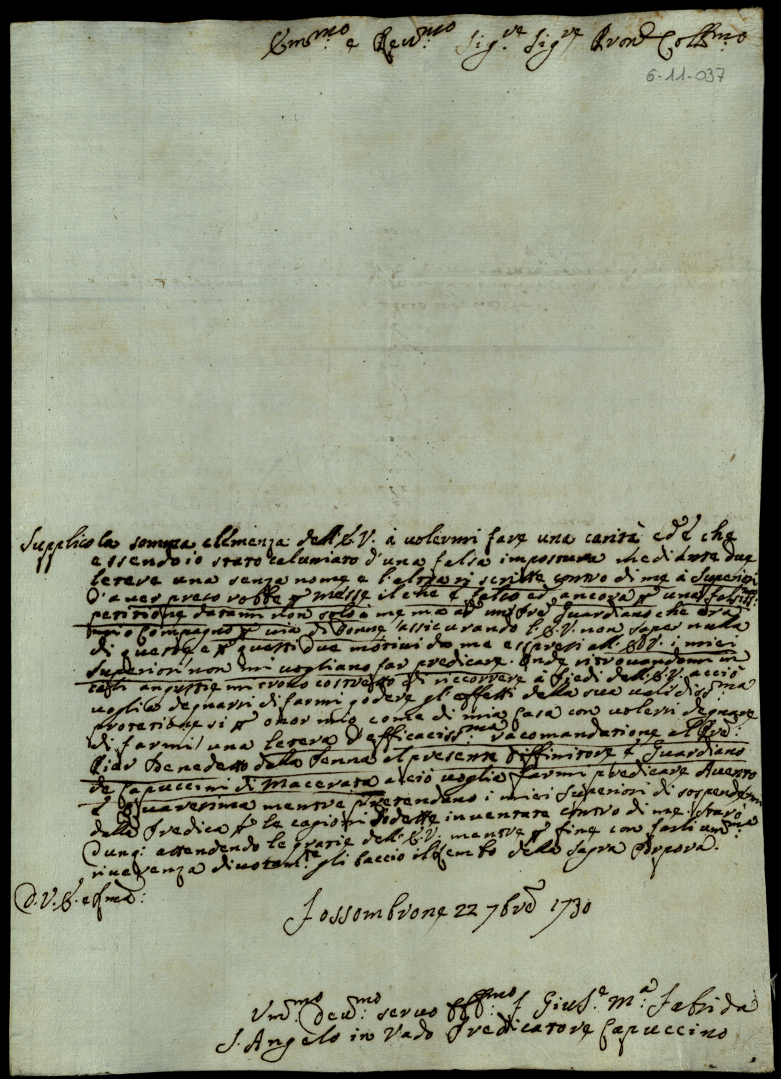 Em.mo e Rev.mo Sig.re Sig.re Pron Coll.mo
6-11-037
Supplico la somma clemenza dell'E.V. à volermi fare una carità ed è che
essendo io stato caluniato d'una falsa impostura mediante due
letere una senza nome e l'altra scritte contro di me à Superiori
d'aver preso robbe p messe il che è falso ed ancora p una falsiss:
petitione datami non solo à me ma ad un Pre Guardiano che era
mio Compagno p via di Donne assicurando l'E.V. non saper nulla
di queste e p questi due motivi da me espressi all'E.V. i miei
Superiori non mi vogliano far predicare. Onde ritrovandomi in
tali angustie mi trovo costretto di riccorrere à Piedi dell'E.V. acciò
voglia degnarsi di farmi godere gl'effetti della sua validiss:ma
protetione si p onor mio come di mia Casa con volersi degnare
di farmi una letera d'efficaciss:ma racomandatione al Pre:
Pier Benedetto dalla Penna al presente Diffinitore è Guardiano
de Capuccini di Macerata acciò voglia farmi predicare Avento
è Quaresima mentre pretendano i miei Superiori di sospendermi
dalla Predica p le cagioni dodette inventate contro di me; starò
Dunq: attendendo le gratie dell'E.V. mentre p fine con farli um:ma
riverenza divotam:te gli baccio il lembo della Sagra Porpora.
D.V.E. e Rma:
Fossombrone 22 7bre 1730
Um:mo Dev:mo servo F. Gius.e M.a Fabrida
S. Angelo in Vado Predicatore Capuccino